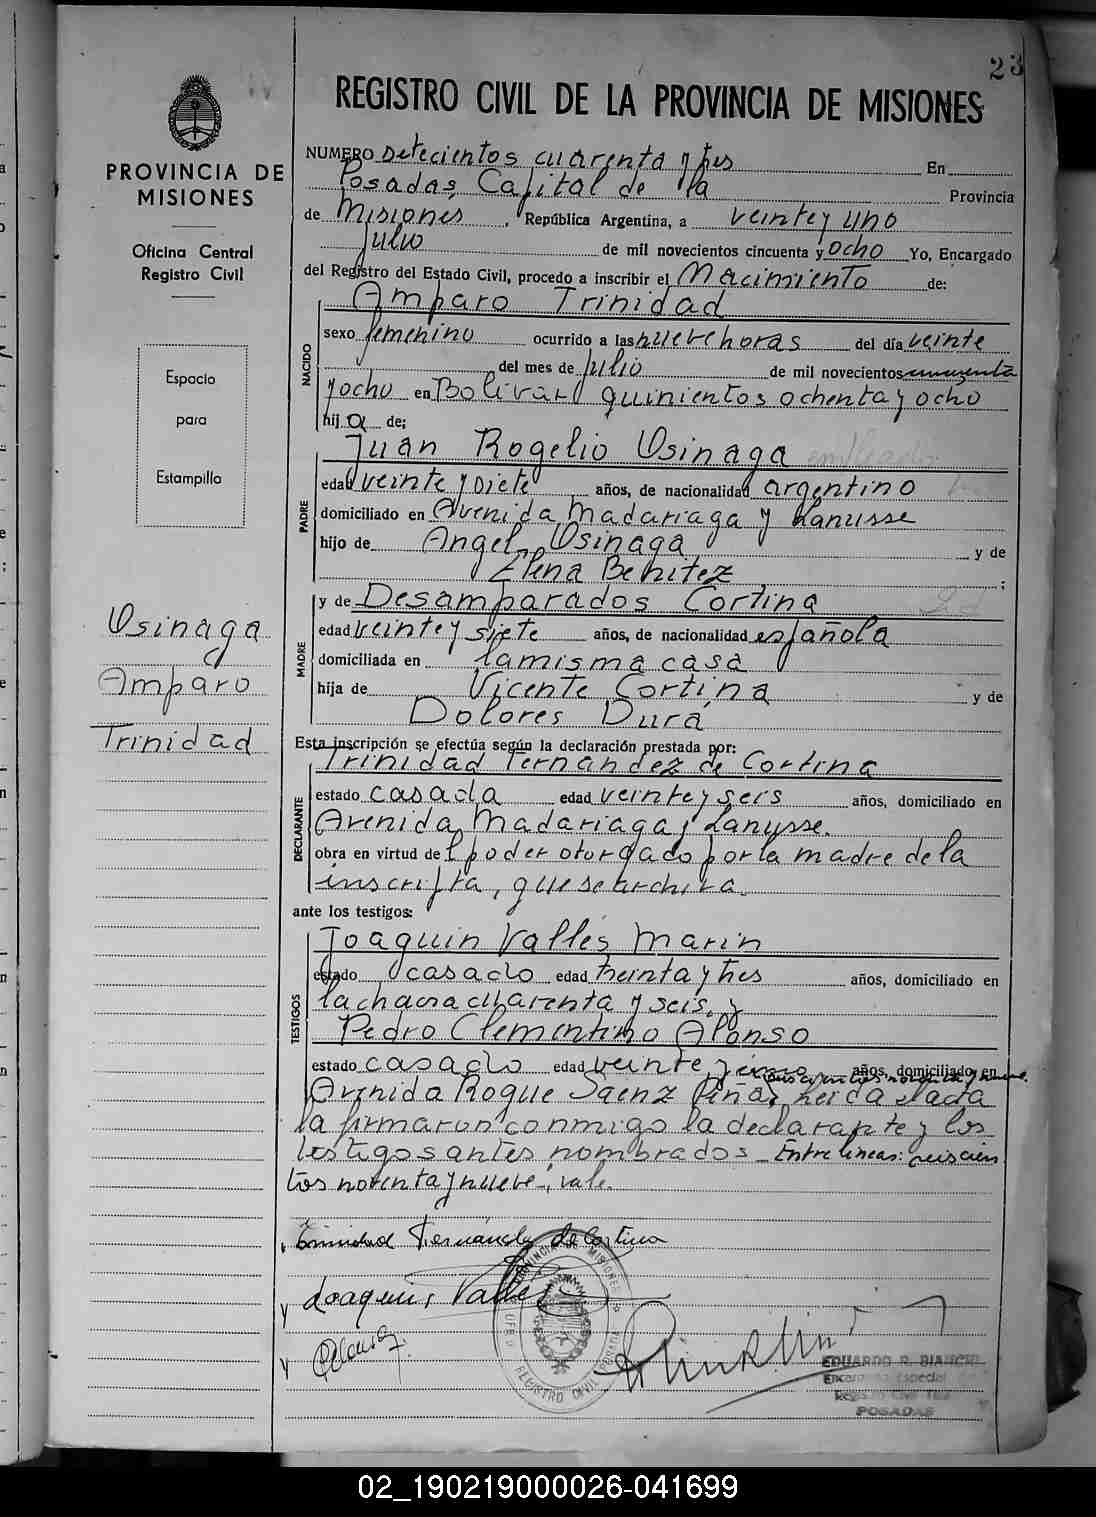 23
REGISTRO CIVIL DE LA PROVINCIA DE MISIONES
PROVINCIA DE
MISIONES
Oficina Central
Registro Civil
Espacio
para
Estampilla
Usinaga
Amparo
Trinidad
NUMERO Setecientos cuarenta y tres En
Posadas, Capital de la Provincia
de Misiones, República Argentina, a veinte y uno
Julio de mil novecientos cincuenta y ocho Yo, Encargado
del Registro del Estado Civil, procedo a inscribir el Nacimiento de:
NACIDO
Amparo Trinidad
sexo femenino ocurrido a las nueve horas del día veinte
del mes de Julio de mil novecientos cincuenta
y ocho en Bolivar quinientos ochenta y ocho
hija de:
PADRE
Juan Rogelio Usinaga empleado
edad veinte y siete años, de nacionalidad argentino
domiciliado en Avenida Madariaga y Lanusse
hijo de Angel Usinaga y de
Elena Benitez ;
MADRE
y de Desamparados Cortina
edad veinte y siete años, de nacionalidad española
domiciliada en la misma casa
hija de Vicente Cortina y de
Dolores Durá
Esta inscripción se efectúa según la declaración prestada por:
DECLARANTE
Trinidad Fernandez de Cortina
estado casada edad veinte y seis años, domiciliado en
Avenida Madariaga y Lanusse.
obra en virtud del poder otorgado por la madre de la
inscripta, que se archiva.
ante los testigos:
TESTIGOS
Joaquin Valles Marin
estado casado edad treinta y tres años, domiciliado en
la chacra cuarenta y seis, y
Pedro Clementino Alonso
estado casado edad veinte y cinco años, domiciliado en
seiscientos noventa y nueve.
Avenida Roque Saenz Peña, Leida el acta
la firmaron conmigo la declarante y los
testigos antes nombrados. Entre lineas: seiscien
tos noventa y nueve, vale.
Trinidad Fernández de Cortina
Joaquin Valles
PAlonso
PROVINCIA DE MISIONES
REGISTRO CIVIL POSADAS
EDUARDO R. BIANCHI
Encargado Especial
Registro Civil
POSADAS
02_190219000026-041699